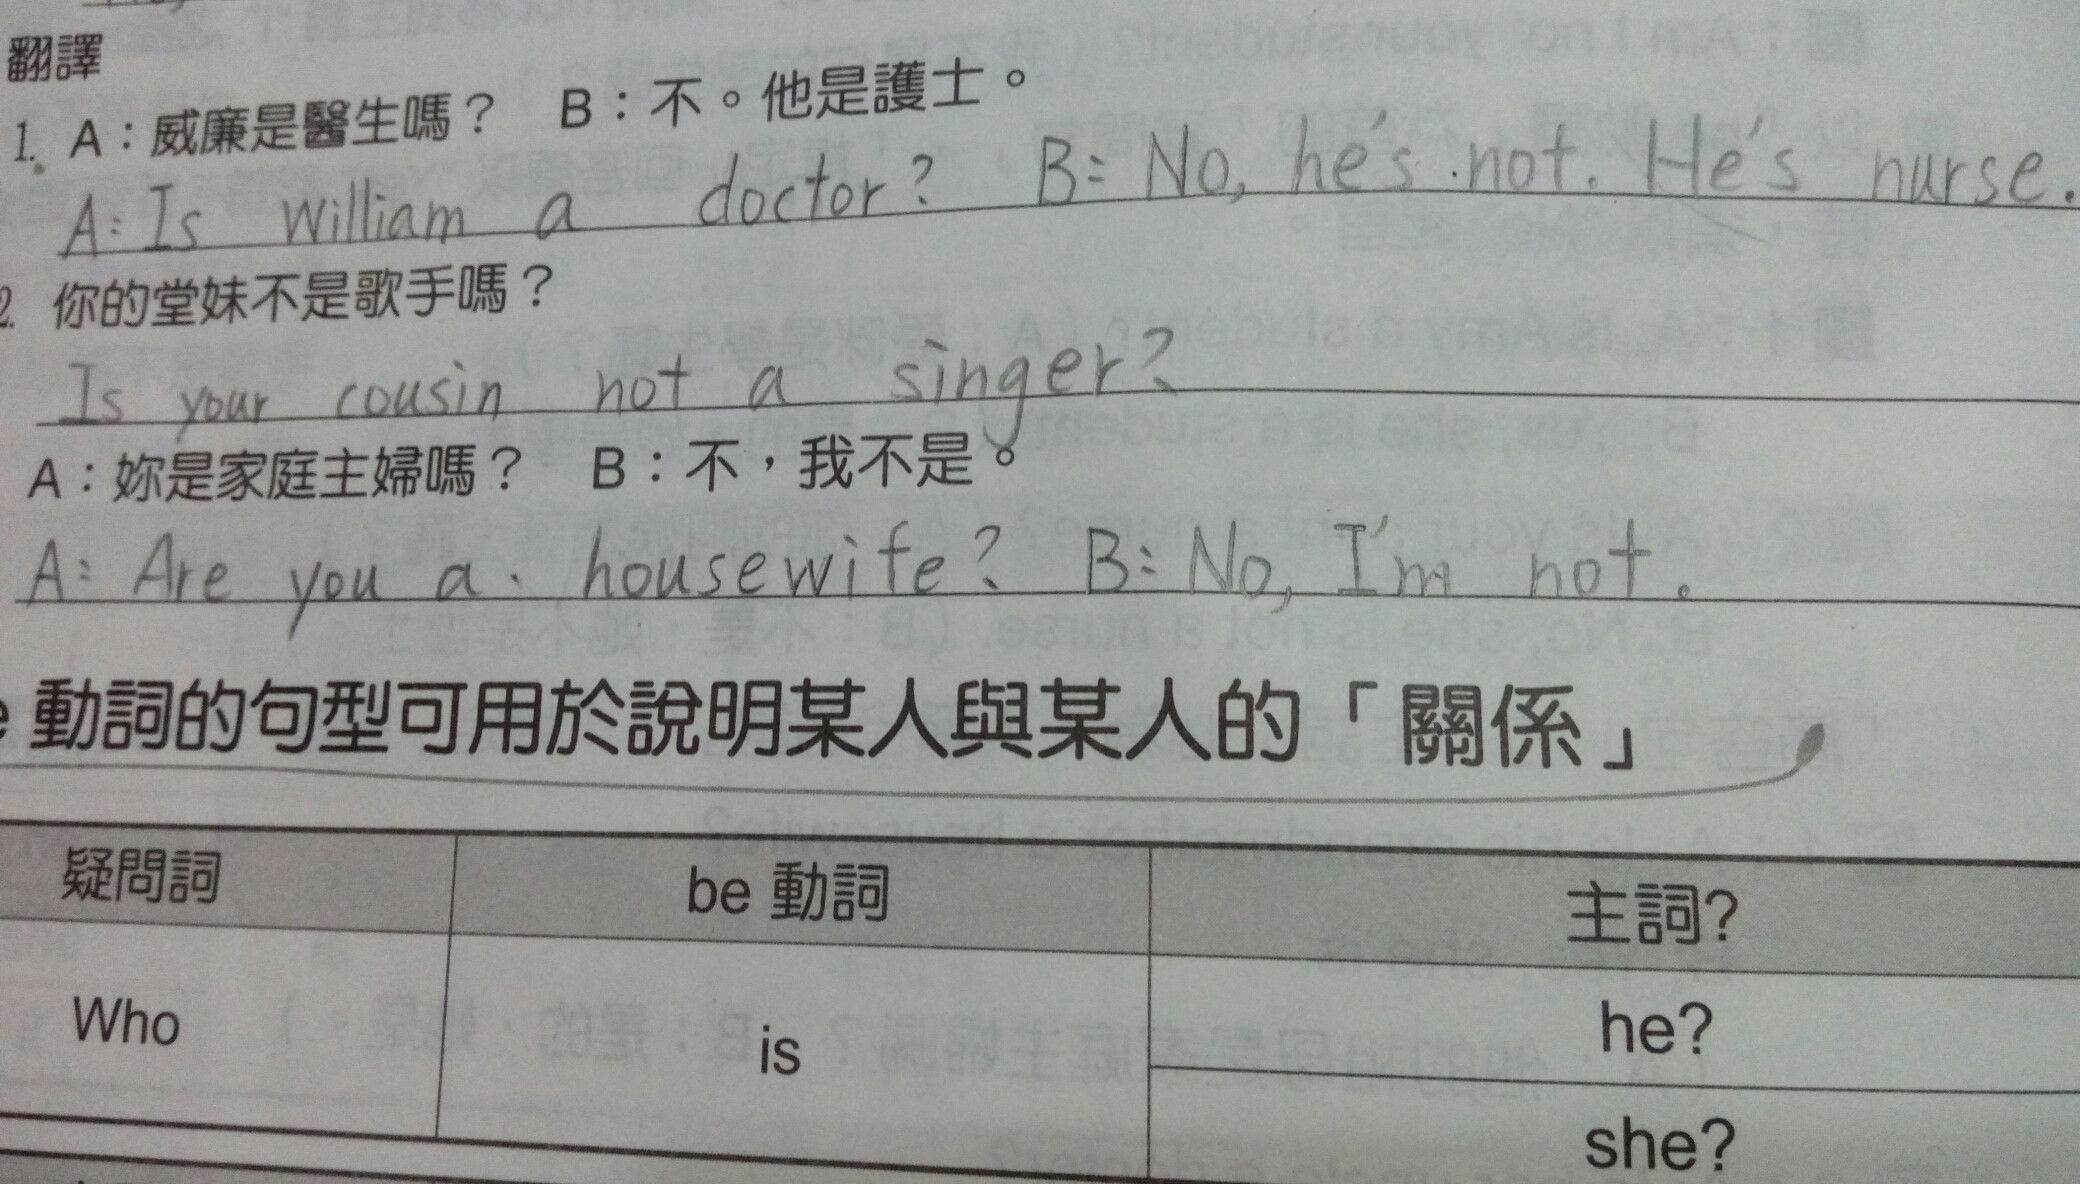 翻譯
1. A：威廉是醫生嗎？ B：不。他是護士。
A: Is William a doctor? B: No, he's not. He's nurse.
2. 你的堂妹不是歌手嗎？
Is your cousin not a singer?
A：妳是家庭主婦嗎？ B：不，我不是。
A: Are you a housewife? B: No, I'm not.
動詞的句型可用於說明某人與某人的「關係」
疑問詞 be 動詞 主詞?
Who is he?
she?